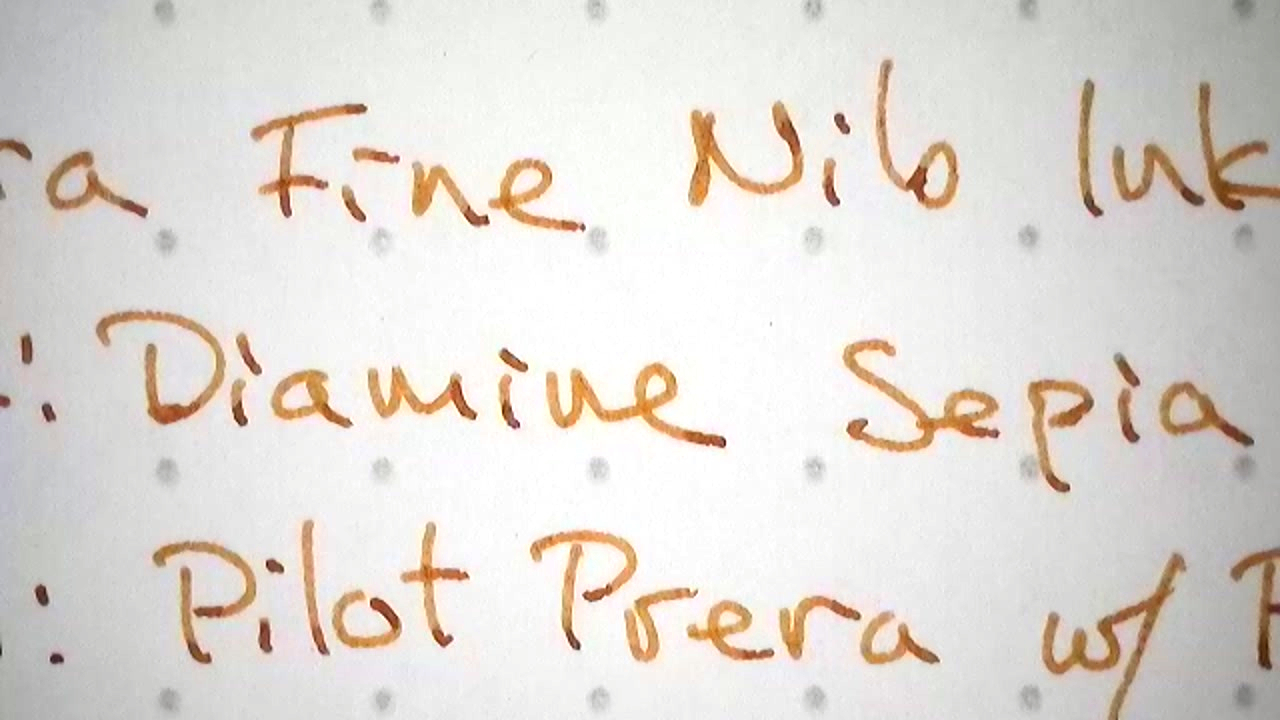 ra Fine Nib Ink
: Diamine Sepia
: Pilot Prera w/ F